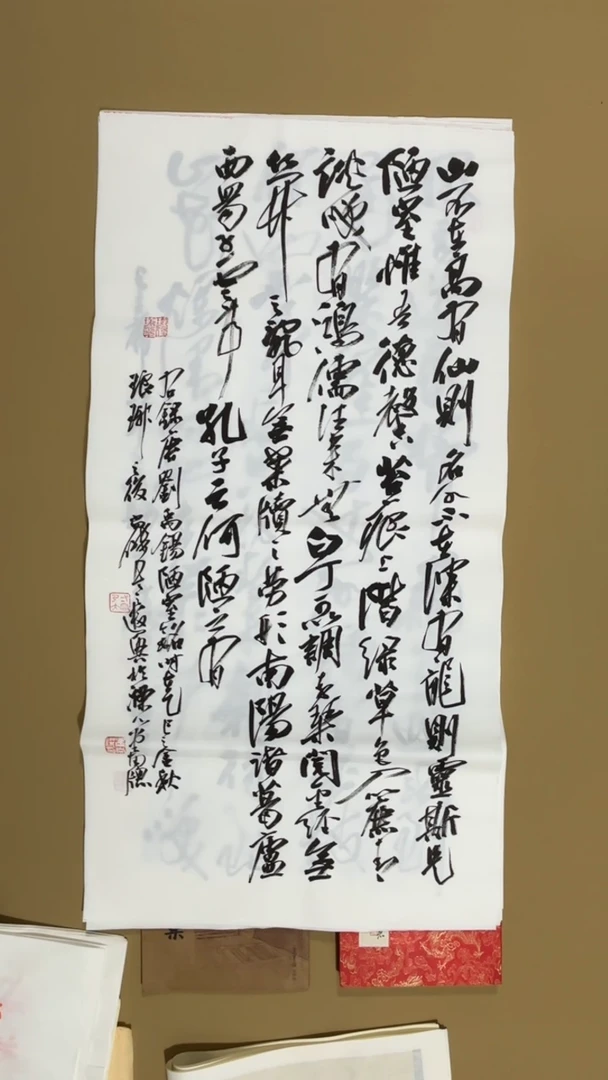 山不在高有仙則名水不在深有龍則靈斯是
陋室惟吾德馨苔痕上階綠草色入簾青
談笑有鴻儒往来無白丁可以調素琴閱金經無
絲竹之亂耳無案牘之勞形南陽諸葛廬
西蜀子雲亭孔子云何陋之有
右錄唐劉禹錫陋室銘時在乙巳之金秋
琅琊之後